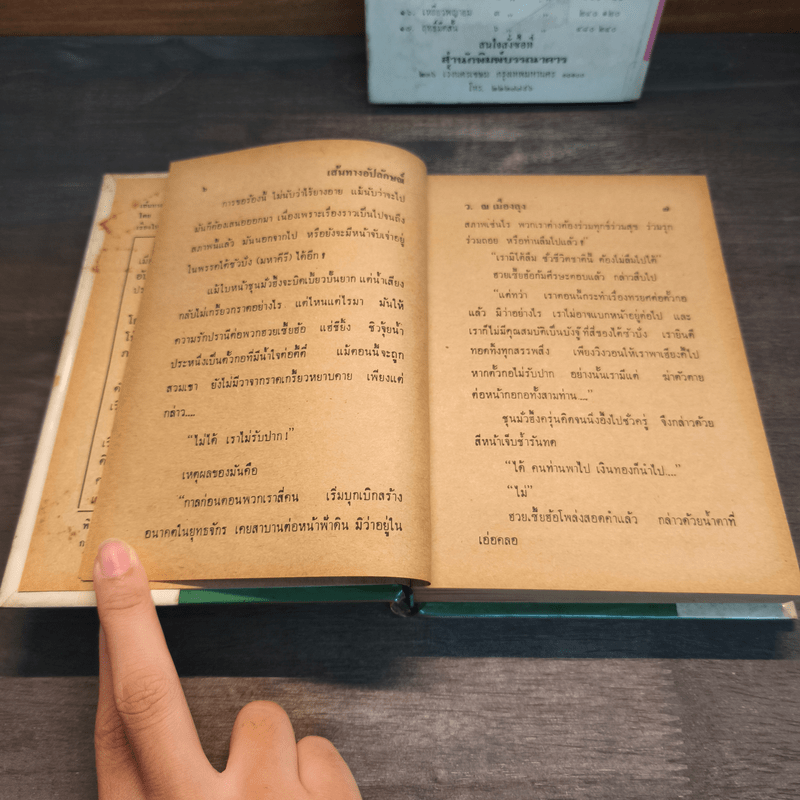 ๑๖. เหยี่ยวพญายม ๓ " " ๒๔๐ ๑๒๐
๑๗. ฤทธิ์มีดสั้น ๔ " " ๔๔๐ ๒๔๐
สนใจสั่งซื้อที่
สำนักพิมพ์บรรณาคาร
โทร.
๖ เส้นทางอัปลักษณ์
การขอร้องนี้ ไม่นับว่าไร้ยางอาย แม้นับว่าจะไป
มันก็ต้องเสนอออกมา เนื่องเพราะเรื่องราวเป็นไปจนถึง
สภาพนี้แล้ว มันนอกจากไป หรือยังจะมีหน้าจับเจ่าอยู่
ในพรรคไต้ซัวบั้ง (มหาคีรี) ได้อีก !
แม้ใบหน้าซุนมั่วฮึ้งจะบิดเบี้ยวปั้นยาก แต่น้ำเสียง
กลับไม่เกรี้ยวกราดอย่างไร แต่ไหนแต่ไรมา มันให้
ความรักปรานีต่อพวกฮวยเซี้ยฮ้อ แฮ่รียั้ง ชิวจุ้ยน้ำ
ประหนึ่งเป็นตั้วกอที่มีน้ำใจต่อตี๋ตี๋ แม้ตอนนี้จะถูก
สวมเขา ยังไม่มีวาจากราดเกรี้ยวหยาบคาย เพียงแต่
กล่าว....
"ไม่ได้ เราไม่รับปาก !"
เหตุผลของมันคือ
"กาลก่อนตอนพวกเราสี่คน เริ่มบุกเบิกสร้าง
อนาคตในยุทธจักร เคยสาบานต่อหน้าฟ้าดิน มิว่าอยู่ใน
ว. ณ เมืองลุง ๗
สภาพเช่นไร พวกเราต่างต้องร่วมทุกข์ร่วมสุข ร่วมรุก
ร่วมถอย หรือท่านลืมไปแล้ว !"
"เรามิได้ลืม ชั่วชีวิตชาตินี้ ต้องไม่ลืมไปได้"
ฮวยเซี้ยฮ้อก้มศีรษะตอบแล้ว กล่าวสืบไป
"แต่ทว่า เราตอนนี้กระทำเรื่องทรยศต่อตั้วกอ
แล้ว มิว่าอย่างไร เราไม่อาจแบกหน้าอยู่ต่อไป และ
เราก็ไม่มีคุณสมบัติเป็นบังจู๊ที่สี่ของไต้ซัวบั้ง เรายินดี
ทอดทิ้งทุกสรรพสิ่ง เพียงวิงวอนให้เราพาเฮียงตี๋ไป
หากตั้วกอไม่รับปาก อย่างนั้นเรามีแต่ ฆ่าตัวตาย
ต่อหน้ากอกอทั้งสามท่าน...."
ซุนมั่วฮึ้งครุ่นคิดจนนิ่งอึ้งไปชั่วครู่ จึงกล่าวด้วย
สีหน้าเจ็บช้ำรันทด
"ได้ คนท่านพาไป เงินทองก็นำไป...."
"ไม่"
ฮวยเซี้ยฮ้อโพล่งสอดคำแล้ว กล่าวด้วยน้ำตาที่
เอ่อคลอ